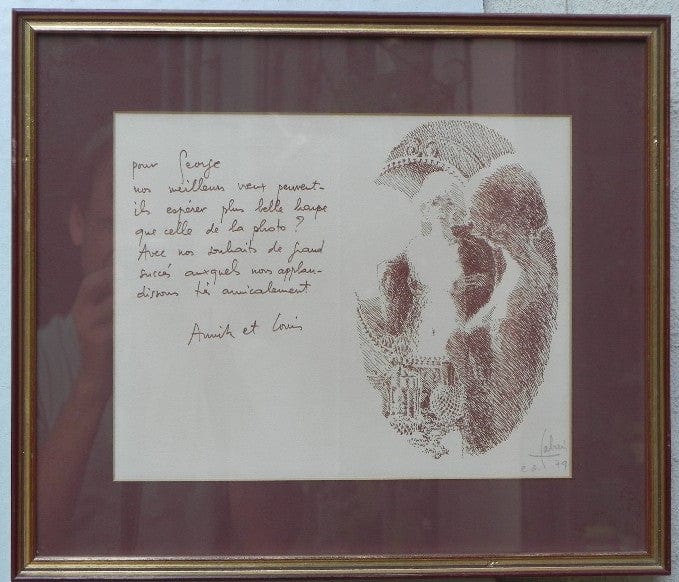 pour George
nos meilleurs vœux peuvent-
ils espérer plus belle harpe
que celle de la photo ?
Avec nos souhaits de grand
succès auxquels nous applau-
dissons très amicalement
Annik et Louis
e.a. 79